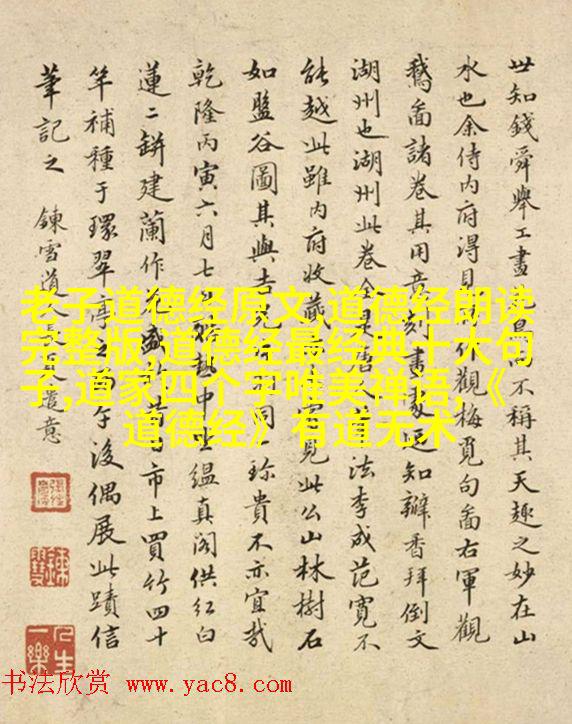 世知錢舜舉工畫不稱其天趣之妙在山
水也余侍内府得見作觀梅覓句圖右軍觀
鵝圖諸卷其用意刻畫知瓣香拜倒文
湖州也湖州此卷全是法李成范寬不
能越此雖内府收藏見此公山林樹石
如盤谷圖其與吉同珍貴不亦宜哉
乾隆丙寅六月七熱中坐緼真閣供紅白
蓮二缾建蘭作盛市上買竹四十
竿補種于環翠亭之午後偶展此蹟信
筆記之 鍊雪道人長夏遣意
老子道德经原文,道德经朗读
完整版,道德经最经典十大句
子,道家四个字唯美禅语,《
道德经》有道无术
人生一樂
书法欣赏 www.yac8.com